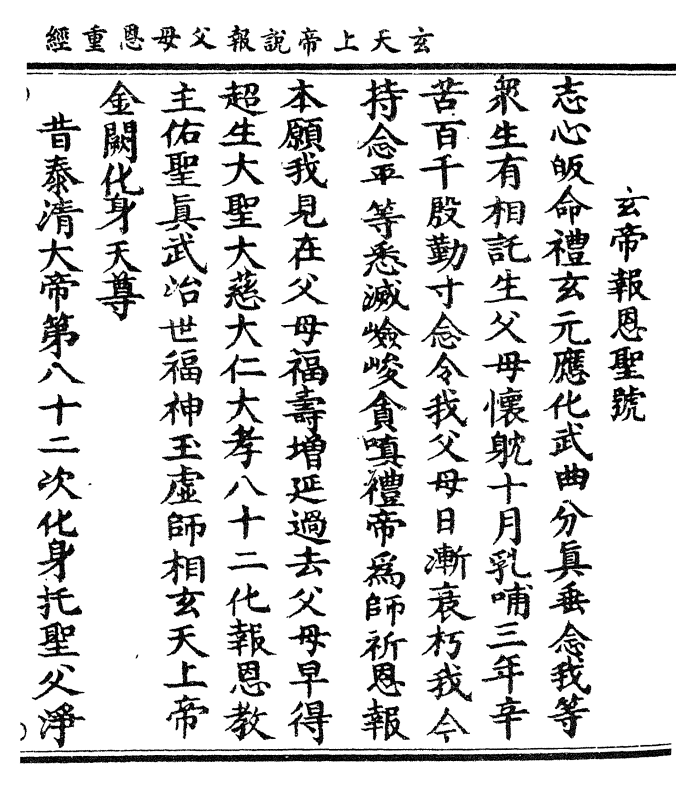 玄天上帝說報父母恩重經
玄帝報恩聖號
志心皈命禮玄元應化武曲分眞垂念我等
衆生有相託生父母懷躭十月乳哺三年辛
苦百千殷勤寸念令我父母日漸衰朽我今
持念平等悉滅嶮峻貪嗔禮帝爲師祈恩報
本願我見在父母福壽增延過去父母早得
超生大聖大慈大仁大孝八十二化報恩教
主佑聖眞武治世福神玉虛師相玄天上帝
金闕化身天尊
昔泰清大帝第八十二次化身托聖父淨